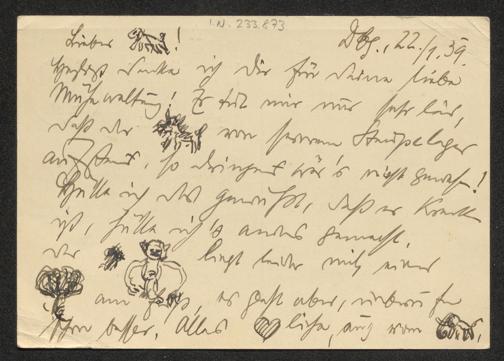 I.N. 233.873
Lieber !
Dbg., 22./1.39.
Herzlichst danke ich Dir für Deine liebe
Mühewaltung! Es tut mir nur sehr leid,
daß der von seinem
aufstand, so dringend wär's nicht gewesen!
Hätte ich das gewußt, daß er krank
ist, hätte ich's anders gemacht.
der liegt leider mit einer
am, es geht aber,
schon besser. Alles liebe, auch vom